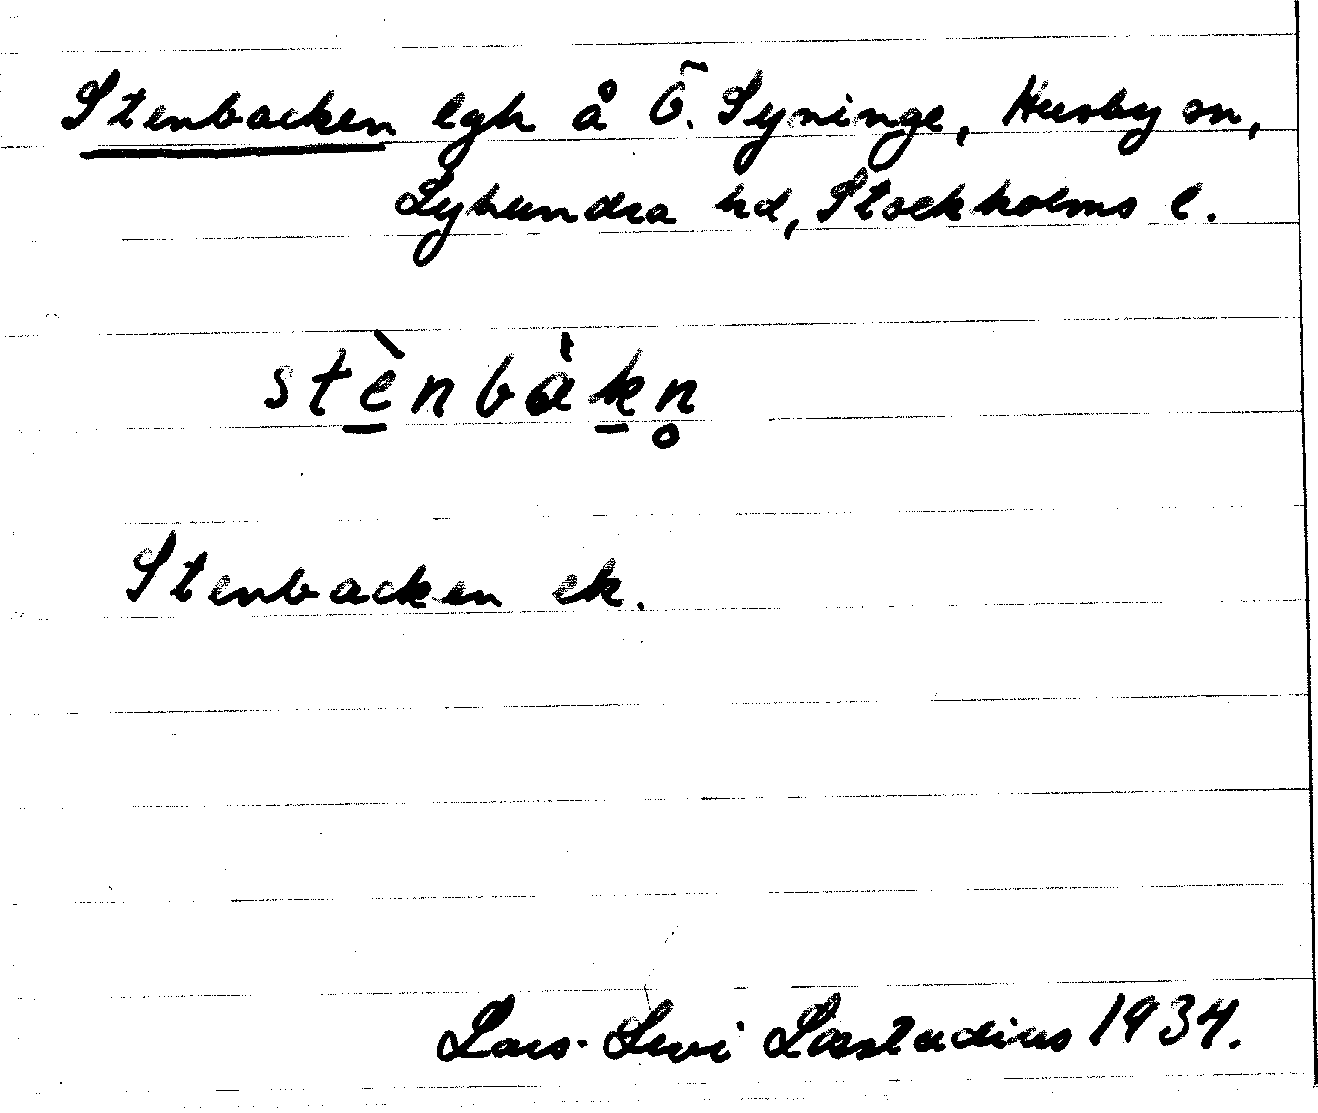 Stenbacken lgh å Ö. Syninge, Husby sn,
Lyhundra hd, Stockholms l.
stè̠nbàk̠n̥
Stenbacken ek.
Lars-Levi Læstadius 1934.